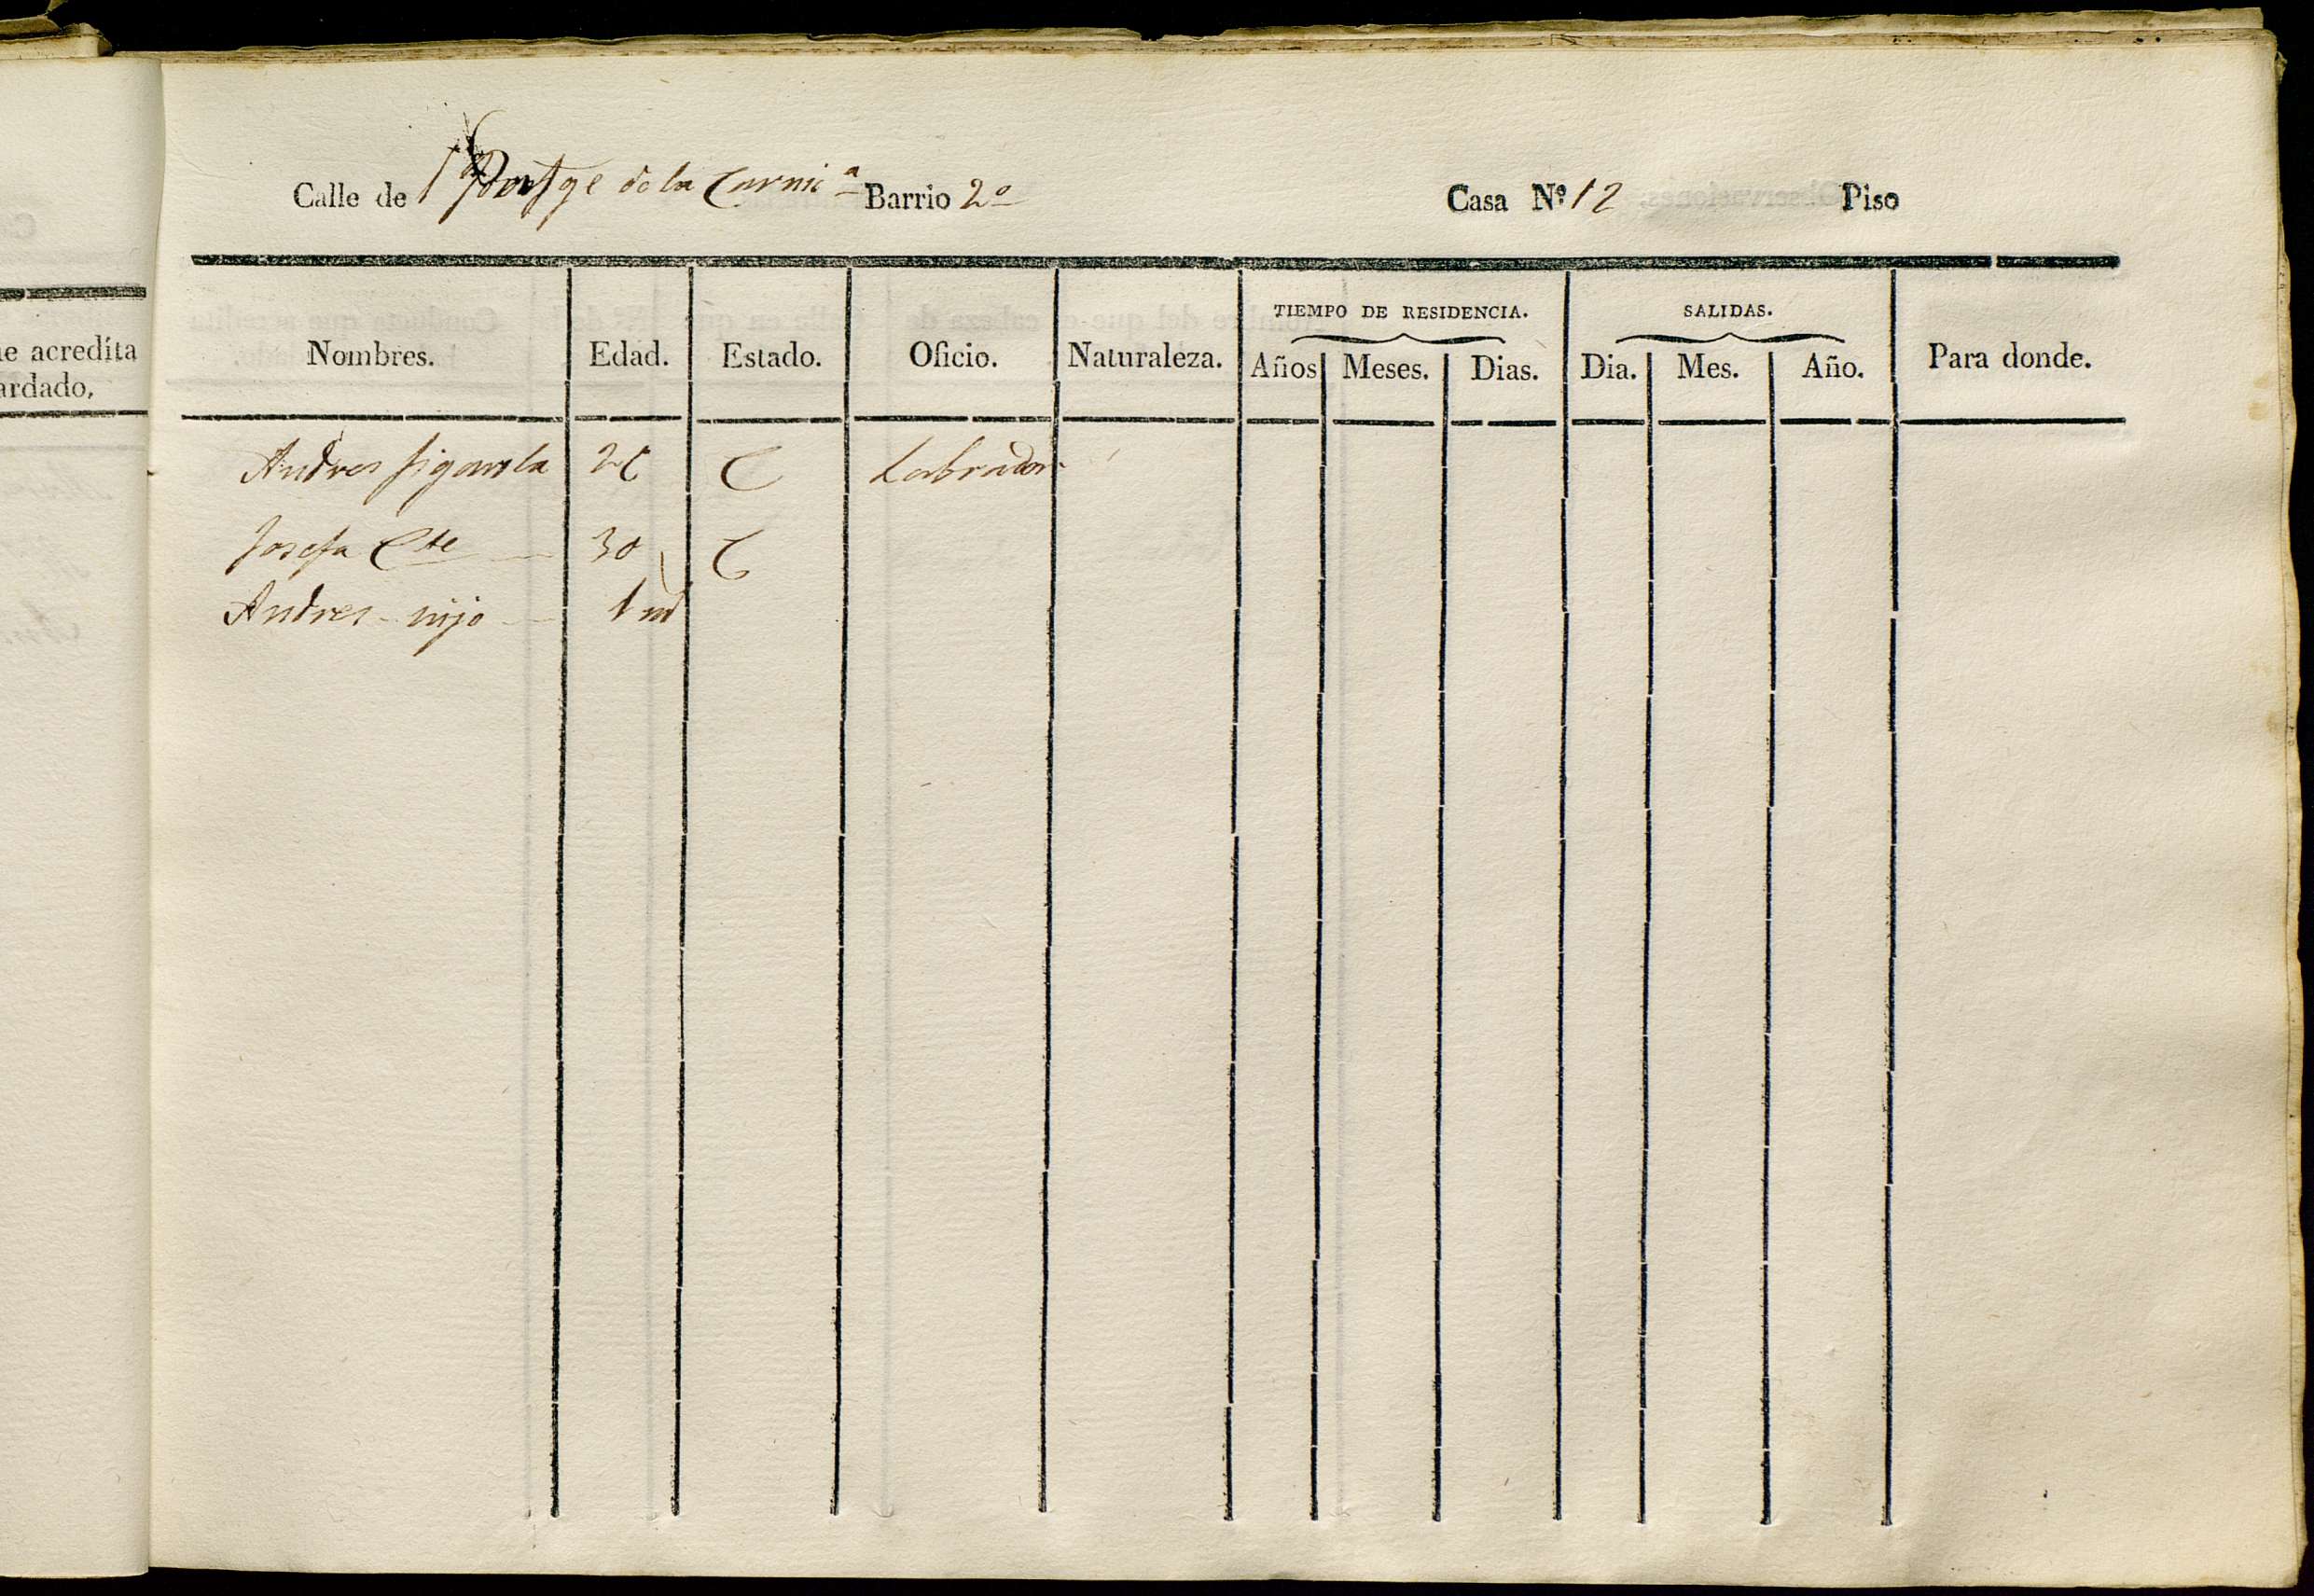 Calle de 1ª Portge de la Carniª Barrio 2º Casa Nº 12 Piso
TIEMPO DE RESIDENCIA. SALIDAS.
Nombres. Edad. Estado. Oficio. Naturaleza. Años Meses. Dias. Dia. Mes. Año. Para donde.
Andres figarola 25 C Labrador
Josefa Cte 30 C
Andres hijo 1 m
ue acredíta
ardado,